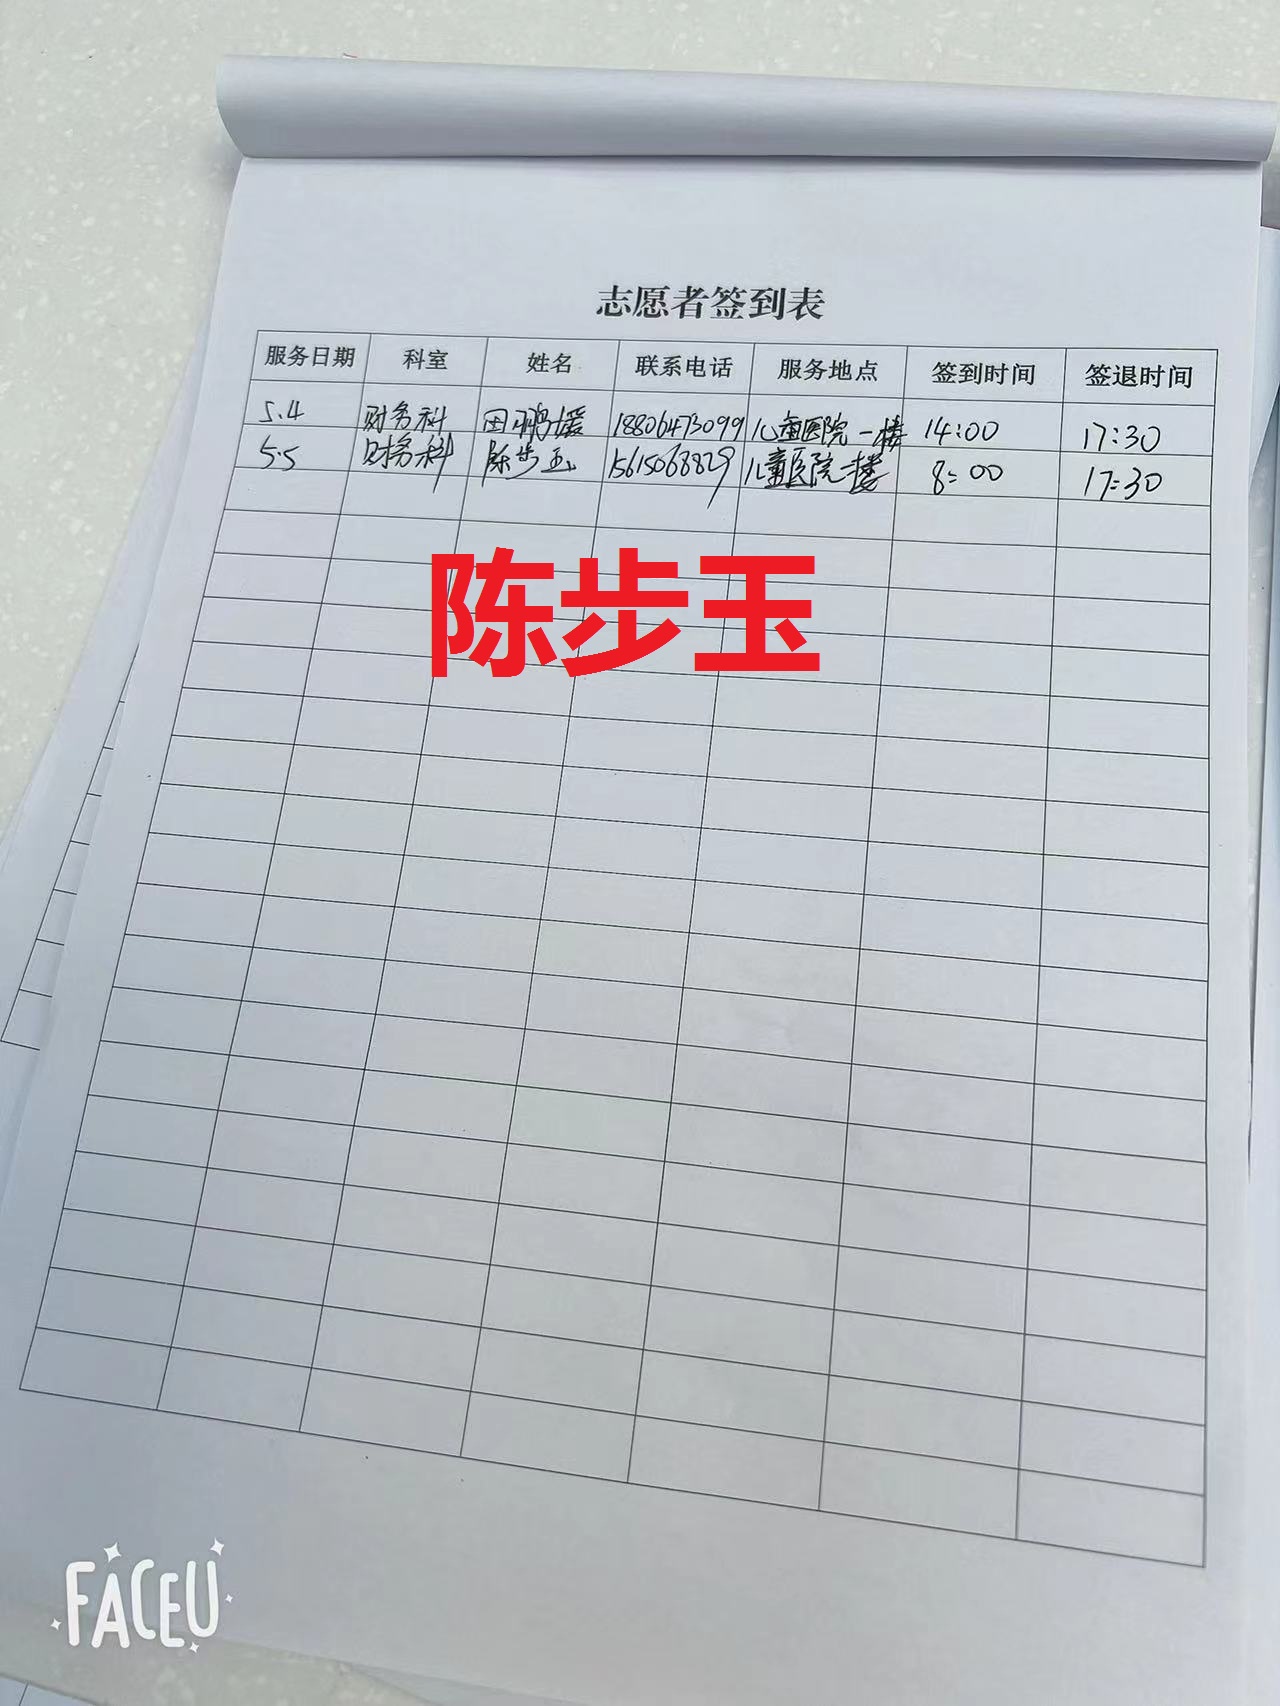 志愿者签到表
服务日期 科室 姓名 联系电话 服务地点 签到时间 签退时间
5.4 财务科 田鹏媛 18806473099 儿童医院一楼 14:00 17:30
5.5 财务科 陈步玉 15615068829 儿童医院一楼 8:00 17:30
陈步玉
FACEU